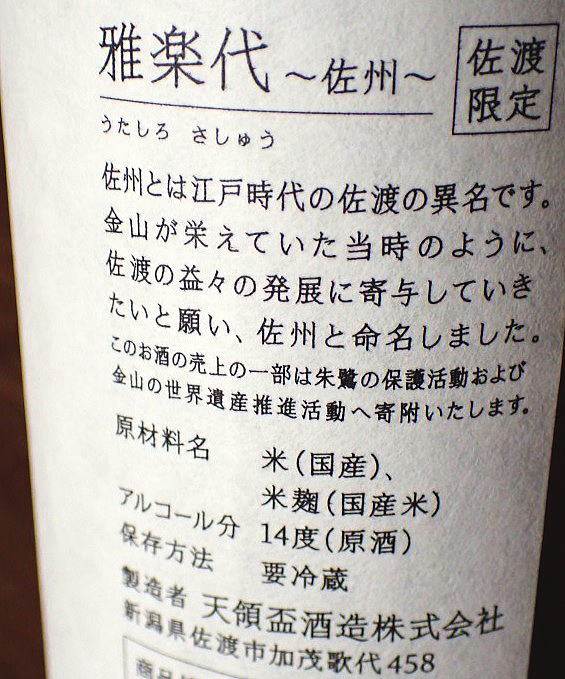 雅楽代 ～佐州～
佐渡
限定
うたしろ さしゅう
佐州とは江戸時代の佐渡の異名です。
金山が栄えていた当時のように、
佐渡の益々の発展に寄与していき
たいと願い、佐州と命名しました。
このお酒の売上の一部は朱鷺の保護活動および
金山の世界遺産推進活動へ寄附いたします。
原材料名 米(国産)、
米麹(国産米)
アルコール分 14度(原酒)
保存方法 要冷蔵
製造者 天領盃酒造株式会社
新潟県佐渡市加茂歌代458